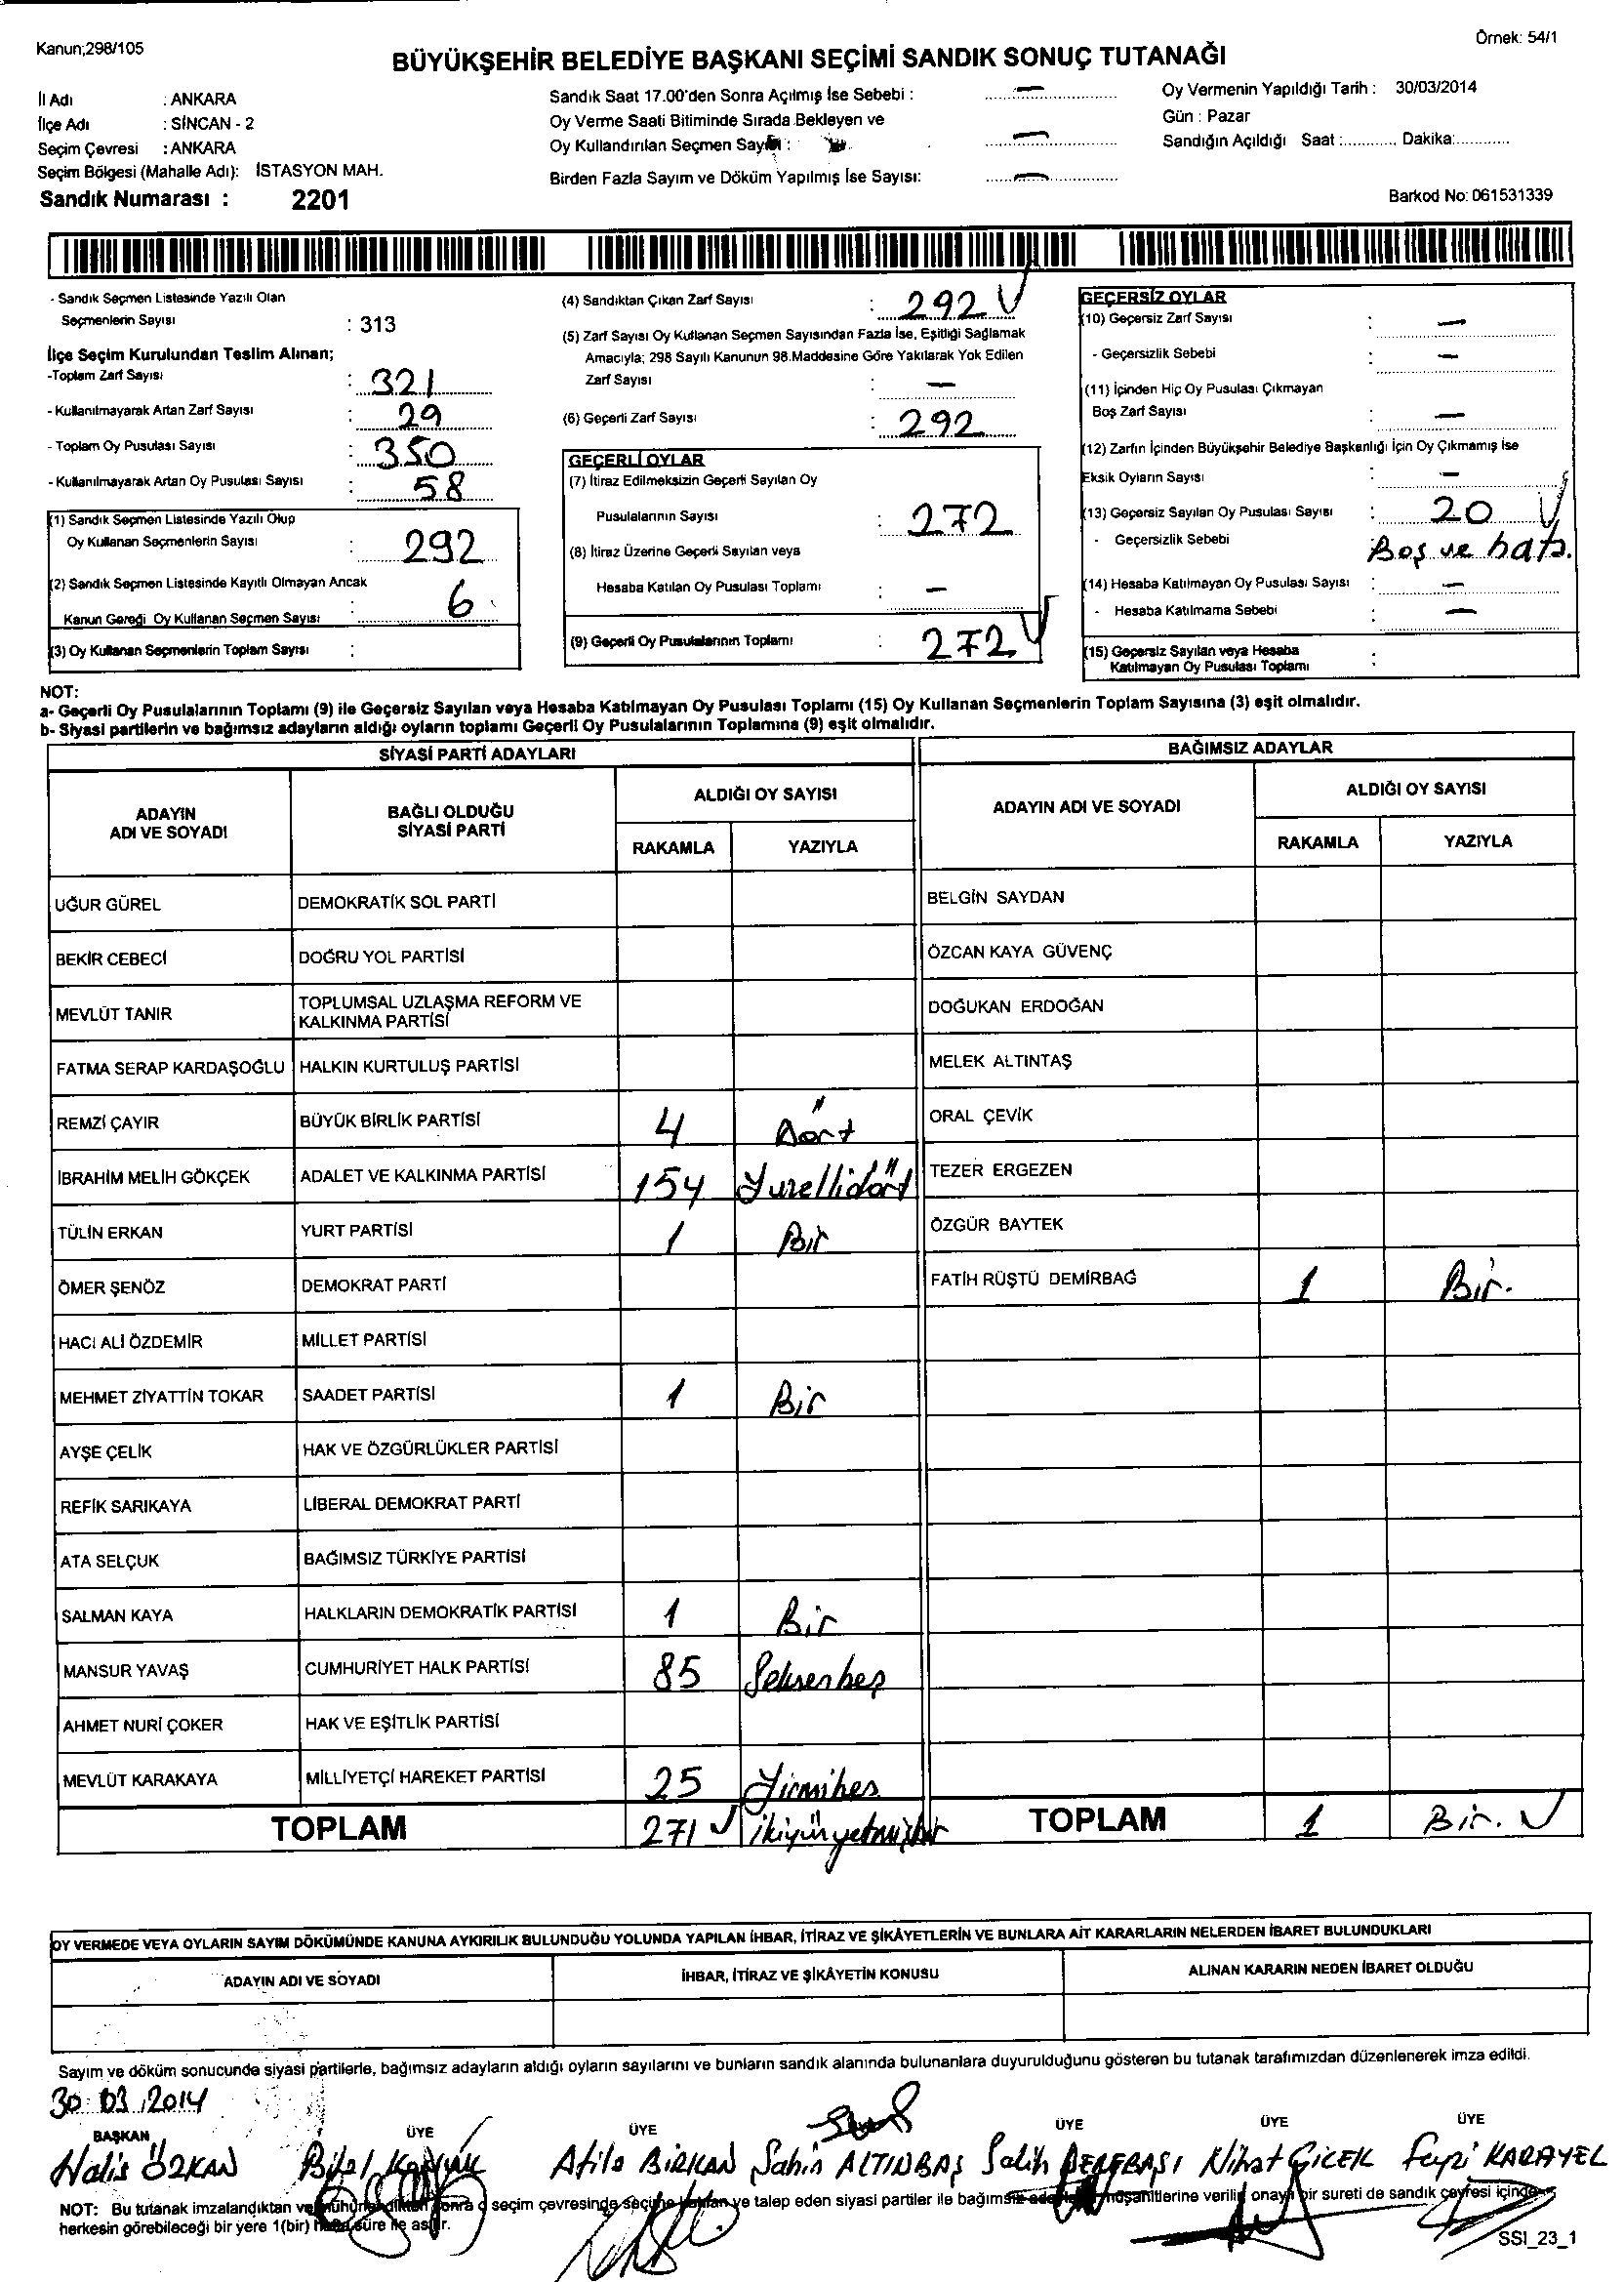 Kanun;298/105
Örnek: 54/1
BÜYÜKŞEHİR BELEDİYE BAŞKANI SEÇİMİ SANDIK SONUÇ TUTANAĞI
İl Adı : ANKARA
İlçe Adı : SİNCAN - 2
Seçim Çevresi : ANKARA
Seçim Bölgesi (Mahalle Adı): İSTASYON MAH.
Sandık Numarası : 2201
Sandık Saat 17.00'den Sonra Açılmış İse Sebebi : —
Oy Verme Saati Bitiminde Sırada Bekleyen ve
Oy Kullandırılan Seçmen Sayısı : —
Birden Fazla Sayım ve Döküm Yapılmış İse Sayısı: —
Oy Vermenin Yapıldığı Tarih : 30/03/2014
Gün : Pazar
Sandığın Açıldığı Saat :............ Dakika:............
Barkod No: 061531339
- Sandık Seçmen Listesinde Yazılı Olan
Seçmenlerin Sayısı : 313
İlçe Seçim Kurulundan Teslim Alınan;
-Toplam Zarf Sayısı : 321
- Kullanılmayarak Artan Zarf Sayısı : 29
- Toplam Oy Pusulası Sayısı : 350
- Kullanılmayarak Artan Oy Pusulası Sayısı : 58
(1) Sandık Seçmen Listesinde Yazılı Olup
Oy Kullanan Seçmenlerin Sayısı : 292
(2) Sandık Seçmen Listesinde Kayıtlı Olmayan Ancak
Kanun Gereği Oy Kullanan Seçmen Sayısı : 6
(3) Oy Kullanan Seçmenlerin Toplam Sayısı :
(4) Sandıktan Çıkan Zarf Sayısı : 292
(5) Zarf Sayısı Oy Kullanan Seçmen Sayısından Fazla İse, Eşitliği Sağlamak
Amacıyla; 298 Sayılı Kanunun 98.Maddesine Göre Yakılarak Yok Edilen
Zarf Sayısı : —
(6) Geçerli Zarf Sayısı : 292
GEÇERLİ OYLAR
(7) İtiraz Edilmeksizin Geçerli Sayılan Oy
Pusulalarının Sayısı : 272
(8) İtiraz Üzerine Geçerli Sayılan veya
Hesaba Katılan Oy Pusulası Toplamı : —
(9) Geçerli Oy Pusulalarının Toplamı : 272
GEÇERSİZ OYLAR
(10) Geçersiz Zarf Sayısı : —
- Geçersizlik Sebebi : —
(11) İçinden Hiç Oy Pusulası Çıkmayan
Boş Zarf Sayısı : —
(12) Zarfın İçinden Büyükşehir Belediye Başkanlığı İçin Oy Çıkmamış İse
Eksik Oyların Sayısı : —
(13) Geçersiz Sayılan Oy Pusulası Sayısı : 20
- Geçersizlik Sebebi : Boş ve hata.
(14) Hesaba Katılmayan Oy Pusulası Sayısı : —
- Hesaba Katılmama Sebebi : —
(15) Geçersiz Sayılan veya Hesaba
Katılmayan Oy Pusulası Toplamı :
NOT:
a- Geçerli Oy Pusulalarının Toplamı (9) ile Geçersiz Sayılan veya Hesaba Katılmayan Oy Pusulası Toplamı (15) Oy Kullanan Seçmenlerin Toplam Sayısına (3) eşit olmalıdır.
b- Siyasi partilerin ve bağımsız adayların aldığı oyların toplamı Geçerli Oy Pusulalarının Toplamına (9) eşit olmalıdır.
SİYASİ PARTİ ADAYLARI
ADAYIN ADI VE SOYADI
BAĞLI OLDUĞU SİYASİ PARTİ
ALDIĞI OY SAYISI
RAKAMLA YAZIYLA
UĞUR GÜREL DEMOKRATİK SOL PARTİ
BEKİR CEBECİ DOĞRU YOL PARTİSİ
MEVLÜT TANIR TOPLUMSAL UZLAŞMA REFORM VE KALKINMA PARTİSİ
FATMA SERAP KARDAŞOĞLU HALKIN KURTULUŞ PARTİSİ
REMZİ ÇAYIR BÜYÜK BİRLİK PARTİSİ 4 Dört
İBRAHİM MELİH GÖKÇEK ADALET VE KALKINMA PARTİSİ 154 Yüzellidört
TÜLİN ERKAN YURT PARTİSİ 1 Bir
ÖMER ŞENÖZ DEMOKRAT PARTİ
HACI ALİ ÖZDEMİR MİLLET PARTİSİ
MEHMET ZİYATTİN TOKAR SAADET PARTİSİ 1 Bir
AYŞE ÇELİK HAK VE ÖZGÜRLÜKLER PARTİSİ
REFİK SARIKAYA LİBERAL DEMOKRAT PARTİ
ATA SELÇUK BAĞIMSIZ TÜRKİYE PARTİSİ
SALMAN KAYA HALKLARIN DEMOKRATİK PARTİSİ 1 Bir
MANSUR YAVAŞ CUMHURİYET HALK PARTİSİ 85 Seksenbeş
AHMET NURİ ÇOKER HAK VE EŞİTLİK PARTİSİ
MEVLÜT KARAKAYA MİLLİYETÇİ HAREKET PARTİSİ 25 Yirmibeş
TOPLAM 271 İkiyüzyetmişbir
BAĞIMSIZ ADAYLAR
ADAYIN ADI VE SOYADI
ALDIĞI OY SAYISI
RAKAMLA YAZIYLA
BELGİN SAYDAN
ÖZCAN KAYA GÜVENÇ
DOĞUKAN ERDOĞAN
MELEK ALTINTAŞ
ORAL ÇEVİK
TEZER ERGEZEN
ÖZGÜR BAYTEK
FATİH RÜŞTÜ DEMİRBAĞ 1 Bir.
TOPLAM 1 Bir.
OY VERMEDE VEYA OYLARIN SAYIM DÖKÜMÜNDE KANUNA AYKIRILIK BULUNDUĞU YOLUNDA YAPILAN İHBAR, İTİRAZ VE ŞİKÂYETLERİN VE BUNLARA AİT KARARLARIN NELERDEN İBARET BULUNDUKLARI
ADAYIN ADI VE SOYADI
İHBAR, İTİRAZ VE ŞİKÂYETİN KONUSU
ALINAN KARARIN NEDEN İBARET OLDUĞU
Sayım ve döküm sonucunda siyasi partilerle, bağımsız adayların aldığı oyların sayılarını ve bunların sandık alanında bulunanlara duyurulduğunu gösteren bu tutanak tarafımızdan düzenlenerek imza edildi.
30.03.2014
BAŞKAN ÜYE ÜYE ÜYE ÜYE ÜYE
Halis ÖZKAN Bilal Atila BİRKAN Şahin ALTINBAŞ Salih DEREBAŞI Nihat ÇİÇEK Feyzi KARAYEL
NOT: Bu tutanak imzalandıktan ve mühürlendikten sonra seçim çevresinde seçime katılan ve talep eden siyasi partiler ile bağımsız müşahitlerine verilir, onaylı bir sureti de sandık çevresi içinde
herkesin görebileceği bir yere 1(bir) hafta süre ile asılır.
SSI_23_1